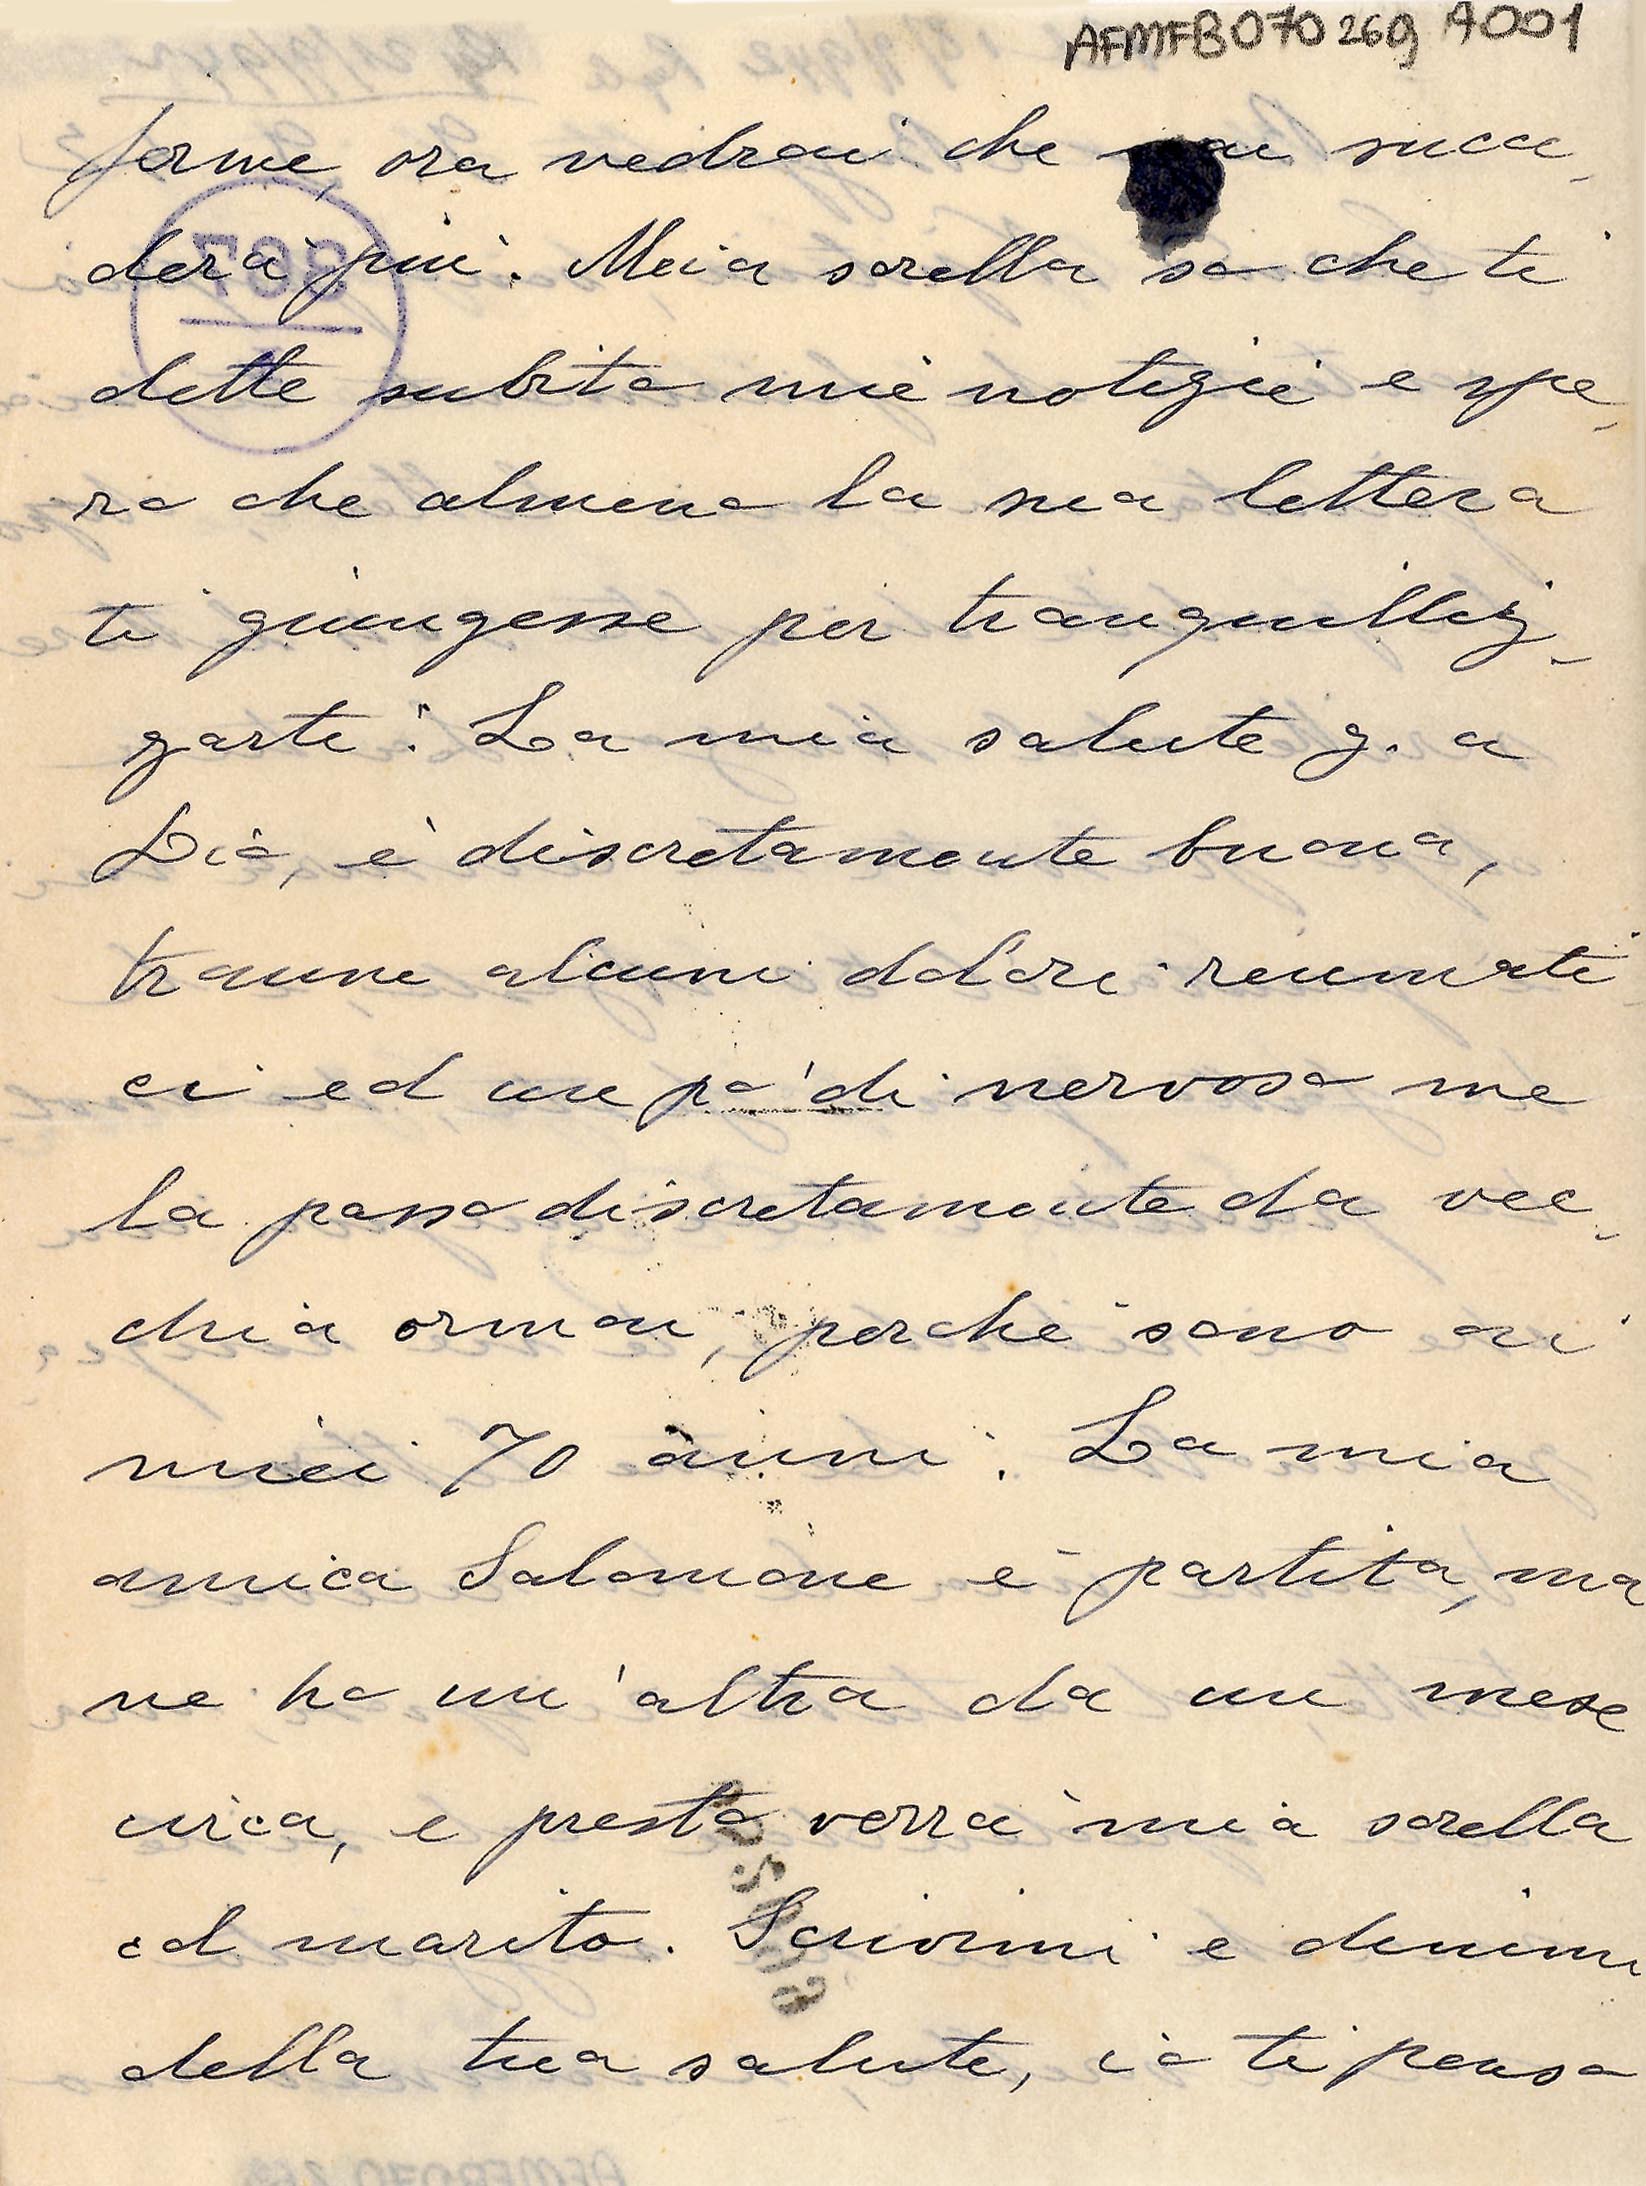 AFMFB070269 A001
forme, ora vedrai che non succe-
derà più. Mia sorella so che ti
dette subito mie notizie e spe-
ro che almeno la sua lettera
ti giungesse per tranquilliz-
zarti. La mia salute g. a
Dio, è discretamente buona,
tranne alcuni dolori reumati-
ci ed un po' di nervoso me
la passo discretamente da vec-
chia ormai, perchè sono ai
miei 70 anni. La mia
amica Salomone è partita, ma
ne ho un'altra da un mese
circa, e presto verrà mia sorella
ed marito. Scrivimi e dimmi
della tua salute, io ti penso